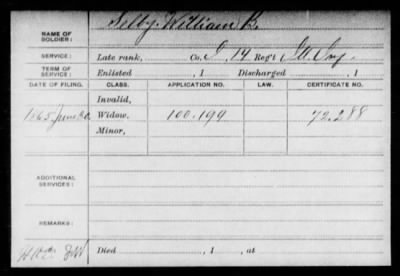 NAME OF SOLDIER: Selby, William B.
SERVICE: Late rank, Co. D, 14 Reg't Ill. Inf.
TERM OF SERVICE: Enlisted , 1 Discharged , 1
DATE OF FILING. CLASS. APPLICATION NO. LAW. CERTIFICATE NO.
Invalid,
1865 June 20. Widow, 100.199 72.288
Minor,
ADDITIONAL SERVICES:
REMARKS:
Died , 1 , at